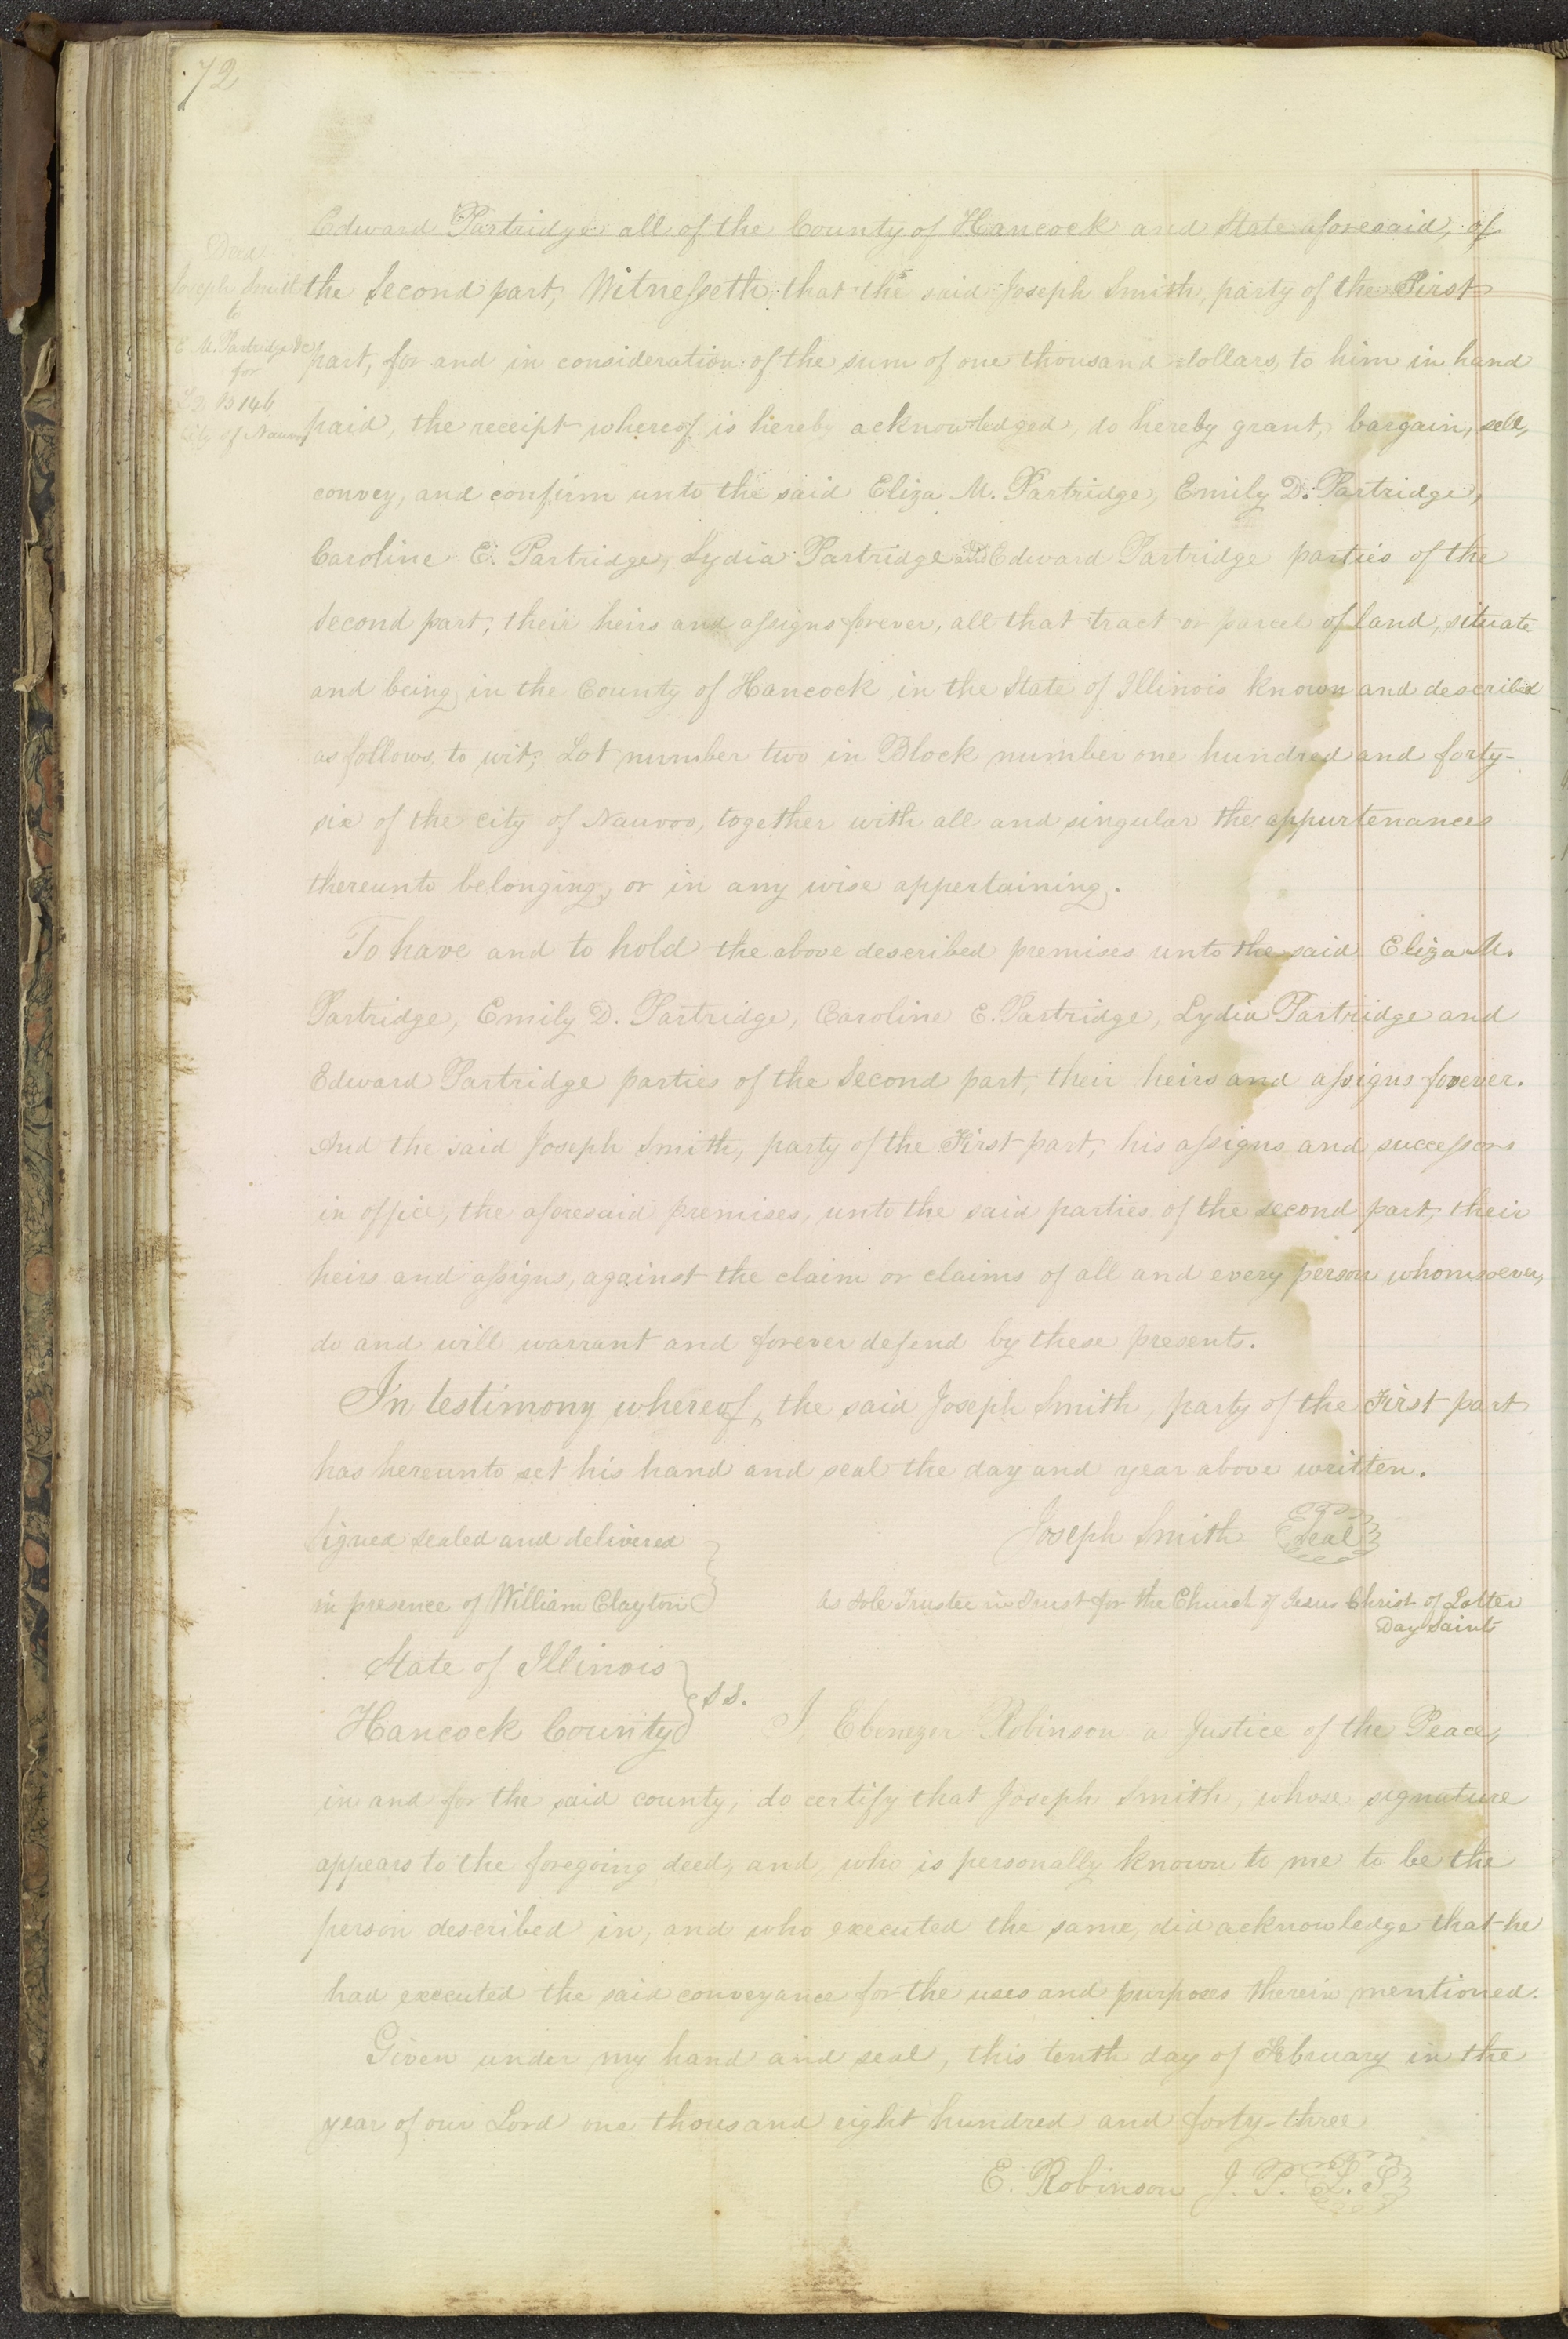 72
Deed
Joseph Smith
to
E M. Partridge &c
for
L 2 B 146
City of Nauvoo
Edward Partridge all of the County of Hancock and State aforesaid, of
the Second part, Witnesseth, that the said Joseph Smith, party of the First
part, for and in consideration of the sum of one thousand dollars, to him in hand
paid, the receipt whereof is hereby acknowledged, do hereby grant, bargain, sell,
convey, and confirm unto the said Eliza M. Partridge, Emily D. Partridge,
Caroline E. Partridge, Lydia Partridge and Edward Partridge parties of the
Second part, their heirs and assigns forever, all that tract or parcel of land, situate
and being in the County of Hancock in the State of Illinois known and described
as follows, to wit; Lot number two in Block number one hundred and forty-
six of the city of Nauvoo, together with all and singular the appurtenances
thereunto belonging, or in any wise appertaining.
To have and to hold the above described premises unto the said Eliza M.
Partridge, Emily D. Partridge, Caroline E. Partridge, Lydia Partridge and
Edward Partridge parties of the Second part, their heirs and assigns forever.
And the said Joseph Smith, party of the First part, his assigns and successors
in office, the aforesaid premises, unto the said parties of the second part, their
heirs and assigns, against the claim or claims of all and every person whomsoever,
do and will warrant and forever defend by these presents.
In testimony whereof, the said Joseph Smith, party of the First part
has hereunto set his hand and seal the day and year above written.
Signed sealed and delivered
in presence of William Clayton
Joseph Smith Seal
As Sole Trustee in Trust for the Church of Jesus Christ of Latter
Day Saints
State of Illinois
Hancock County } S S.
I Ebenezer Robinson a Justice of the Peace,
in and for the said county, do certify that Joseph Smith, whose signature
appears to the foregoing deed, and who is personally known to me to be the
person described in, and who executed the same, did acknowledge that he
had executed the said conveyance for the uses and purposes therein mentioned.
Given under my hand and seal, this tenth day of February in the
year of our Lord one thousand eight hundred and forty-three
E. Robinson J. P. L. S